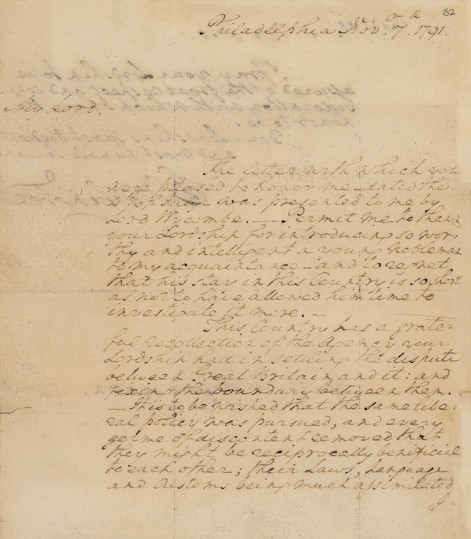 82
Philadelphia Nov. 7th 1791.
My Lord.
The letter with which you
were pleased to honor me – dated the
of – was presented to me by
Lord Wycombe. – Permit me to thank
your Lordship for introducing so wor
thy and intelligent a young Nobleman
to my acquaintance – and to regret,
that his stay in this Country is so short
as not to have allowed him time to
investigate it more. –
This Country has a grate-
ful recollection of the Agency your
Lordship had in settling the dispute
between Great Britain and it; and
fixing the boundary between them.
– It is to be wished that the same libe-
ral policy was pursued, and every
germe of discontent removed that
they might be reciprocally beneficial
to each other; their Laws, Language
and Customs being much assimilated